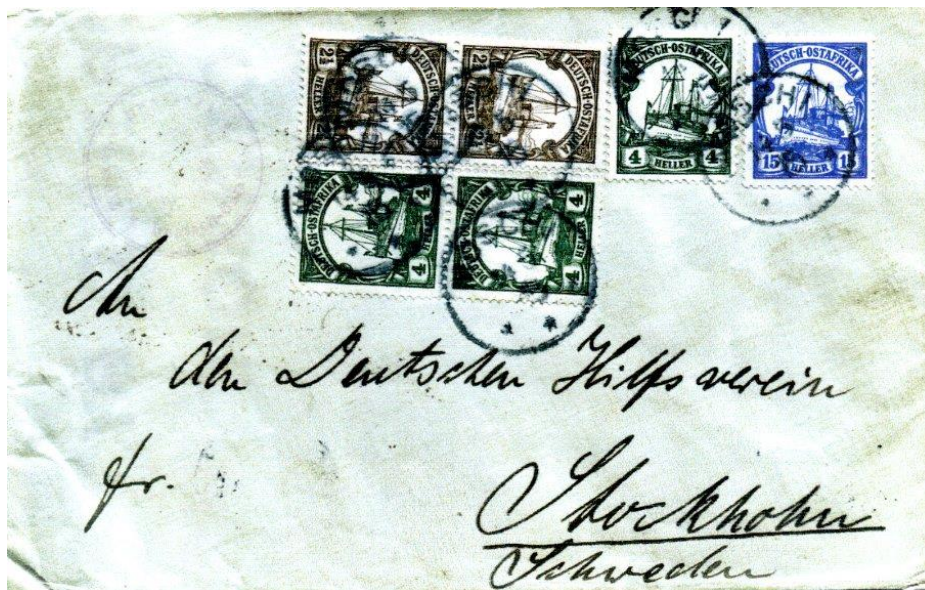 2½ DEUTSCH-OSTAFRIKA 2½ HELLER
2½ DEUTSCH-OSTAFRIKA 2½ HELLER
DEUTSCH-OSTAFRIKA
4 HELLER 4
DEUTSCH-OSTAFRIKA
15 HELLER 15
DEUTSCH-OSTAFRIKA
4 HELLER 4
DEUTSCH-OSTAFRIKA
4 HELLER 4
An
den Deutschen Hilfsverein
fr.
Stockholm
Schweden